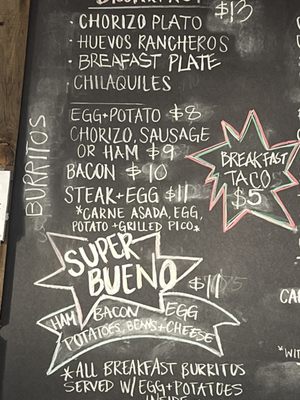 BREAKFAST
$13
• CHORIZO PLATO
• HUEVOS RANCHEROS
• BREAFAST PLATE
• CHILAQUILES
BURRITOS
EGG+POTATO $8
CHORIZO, SAUSAGE
OR HAM $9
BACON $10
STEAK+EGG $11
*CARNE ASADA, EGG,
POTATO +GRILLED PICO*
BREAKFAST
TACO
$5
SUPER
BUENO
$11
HAM BACON EGG
POTATOES, BEANS+CHEESE
*ALL BREAKFAST BURRITOS
SERVED W/EGG+POTATOES
INSIDE